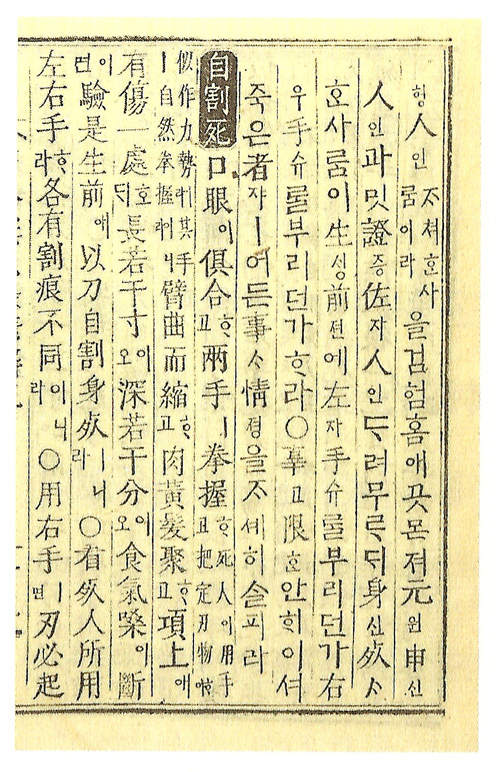 힝人인ᄌᆞ쳐ᄒᆞᆫ사ᄅᆞᆷ이라을검험홈애ᄀᆞᆺ몬져元원申신
人인과밋證증佐자人인ᄃᆞ려무르ᄃᆡ身신死ᄉᆞ
ᄒᆞᆫ사ᄅᆞᆷ이生싱前젼에左자手슈ᄅᆞᆯ부리던가右
우手슈ᄅᆞᆯ부리던가ᄒᆞ라○辜고限ᄒᆞᆫ안히이셔
죽은者쟈ㅣ어든事ᄉᆞ情졍을ᄌᆞ셔히ᄉᆞᆯ피라
自割死口眼이俱合ᄒᆞ고兩手ㅣ拳握ᄒᆞ고死人이用手把定刃物ᄒᆞ야
似作力勢ㅣ라其手ㅣ自然拳握이라臂曲而縮ᄒᆞ고肉黃髮聚ᄒᆞ고項上애
有傷一處호ᄃᆡ長若干寸이오深若干分이오食氣嗓이斷
이면驗是生前에以刀自割身死ㅣ니라○有死人所用
左右手ᄒᆞ라各有割痕不同이니라○用右手ㅣ면刃必起